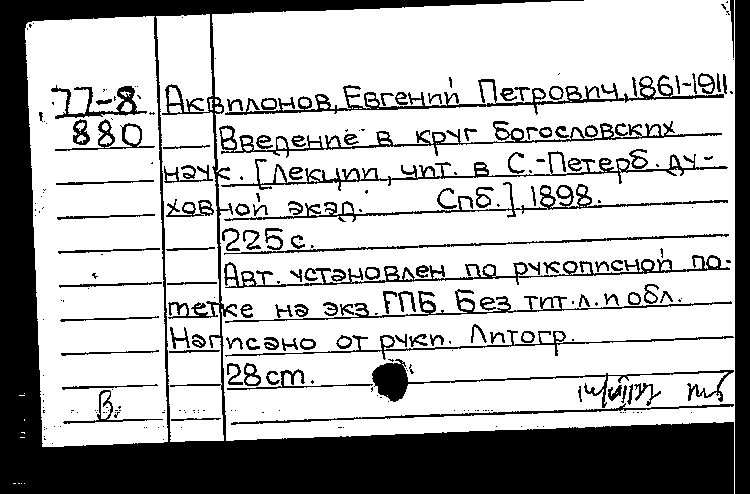 77-8 Аквилонов, Евгений Петрович, 1861-1911.
880 Введение в круг богословских
наук. [Лекции, чит. в С.-Петерб. ду-
ховной акад. Спб.], 1898.
225 с.
Авт. установлен по рукописной по-
метке на экз. ГПБ. Без тит. л. и обл.
Написано от руки. Литогр.
28 cm.
В.